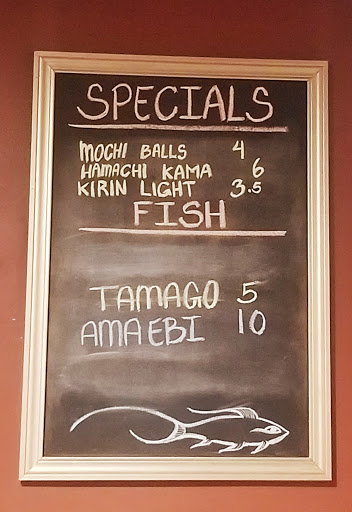 SPECIALS
MOCHI BALLS 4
HAMACHI KAMA 6
KIRIN LIGHT 3.5
FISH
TAMAGO 5
AMAEBI 10